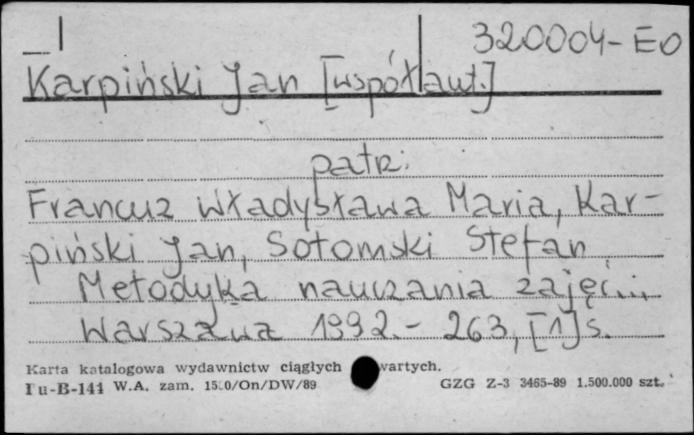 320004-EO
Karpiński Jan [współaut.]
patrz:
Francuz Władysława Maria, Kar-
piński Jan, Sołomski Stefan
Metodyka nauczania zajęć...
Warszawa 1992.- 263, [1] s.
Karta katalogowa wydawnictw ciągłych wartych.
Pu-B-141 W.A. zam. /On/DW/89 GZG Z-3 3465-89 1.500.000 szt.